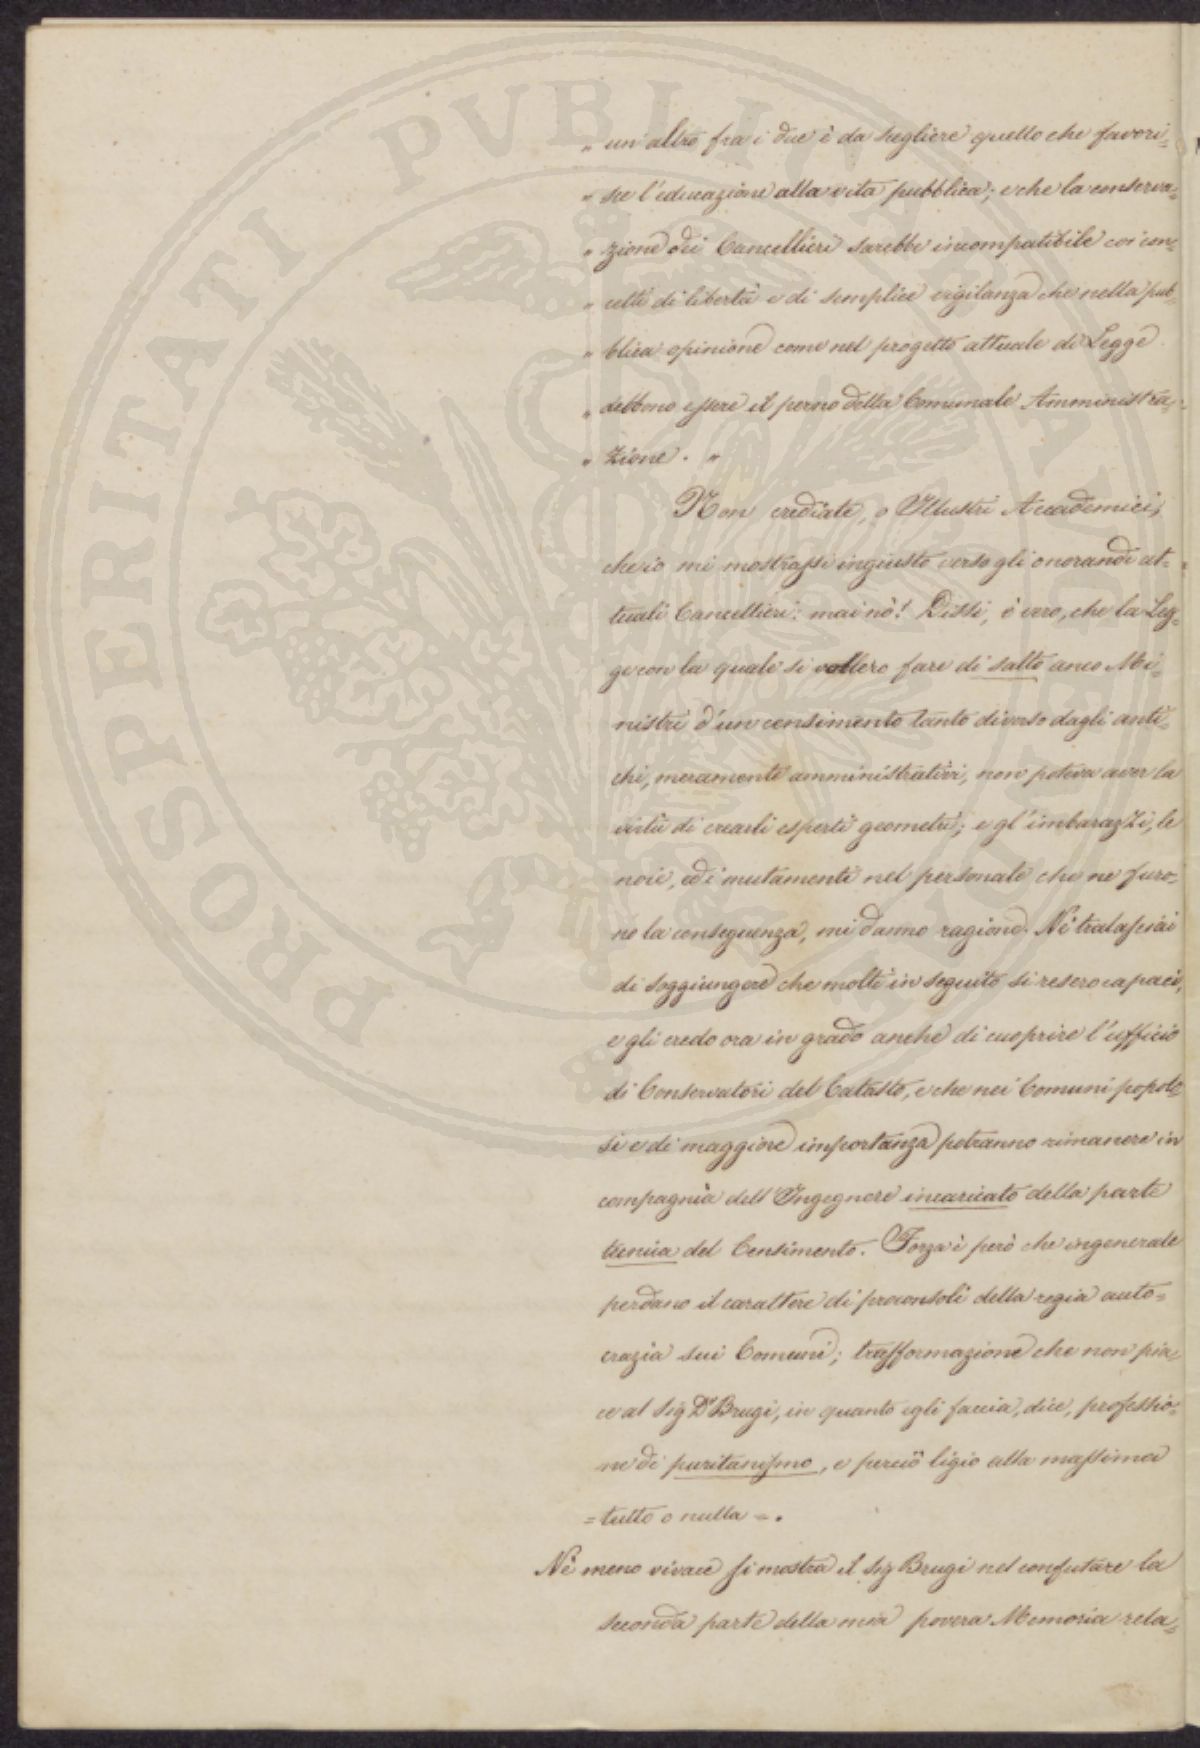 „ un'altro fra i due è da scegliere quello che favori=
„ sce l'educazione alla vita pubblica; e che la conserva=
„ zione dei Cancellieri sarebbe incompatibile coi con=
„ cetti di libertà e di semplice vigilanza che nella pub=
„ blica opinione come nel progetto attuale di Legge
„ debbono essere il perno della Comunale Amministra=
„ zione. „
Non crediate, o Illustri Accademici,
che io mi mostrassi ingiusto verso gli onorandi at=
tuali Cancellieri: mai nò! Dissi, è vero, che la Leg=
ge con la quale si vollero fare di salto anco Mi=
nistri d'un censimento tanto diverso dagli anti=
chi, meramente amministrativi, non poteva aver la
virtù di crearli esperti geometri; e gl'imbarazzi, le
noie, ed i mutamenti nel personale che ne furo=
no la conseguenza, mi danno ragione. Nè tralasciai
di soggiungere che molti in seguito si resero capaci,
e gli credo ora in grado anche di cuoprire l'ufficio
di Conservatori del Catasto, e che nei Comuni popolo=
si e di maggiore importanza potranno rimanere in
compagnia dell'Ingegnere incaricato della parte
tecnica del Censimento. Forza è però che in generale
perdano il carattere di proconsoli della regia auto=
crazia sui Comuni; trasformazione che non pia=
ce al Sig Dr Brugi, in quanto egli faccia, dice, professio=
ne di puritanismo, e perciò ligio alla massima
= tutto o nulla =.
Nè meno vivace si mostra il Sig Brugi nel confutare la
seconda parte della mia povera Memoria rela=
PROSPERITATI PVBLICAE AVGENDAE